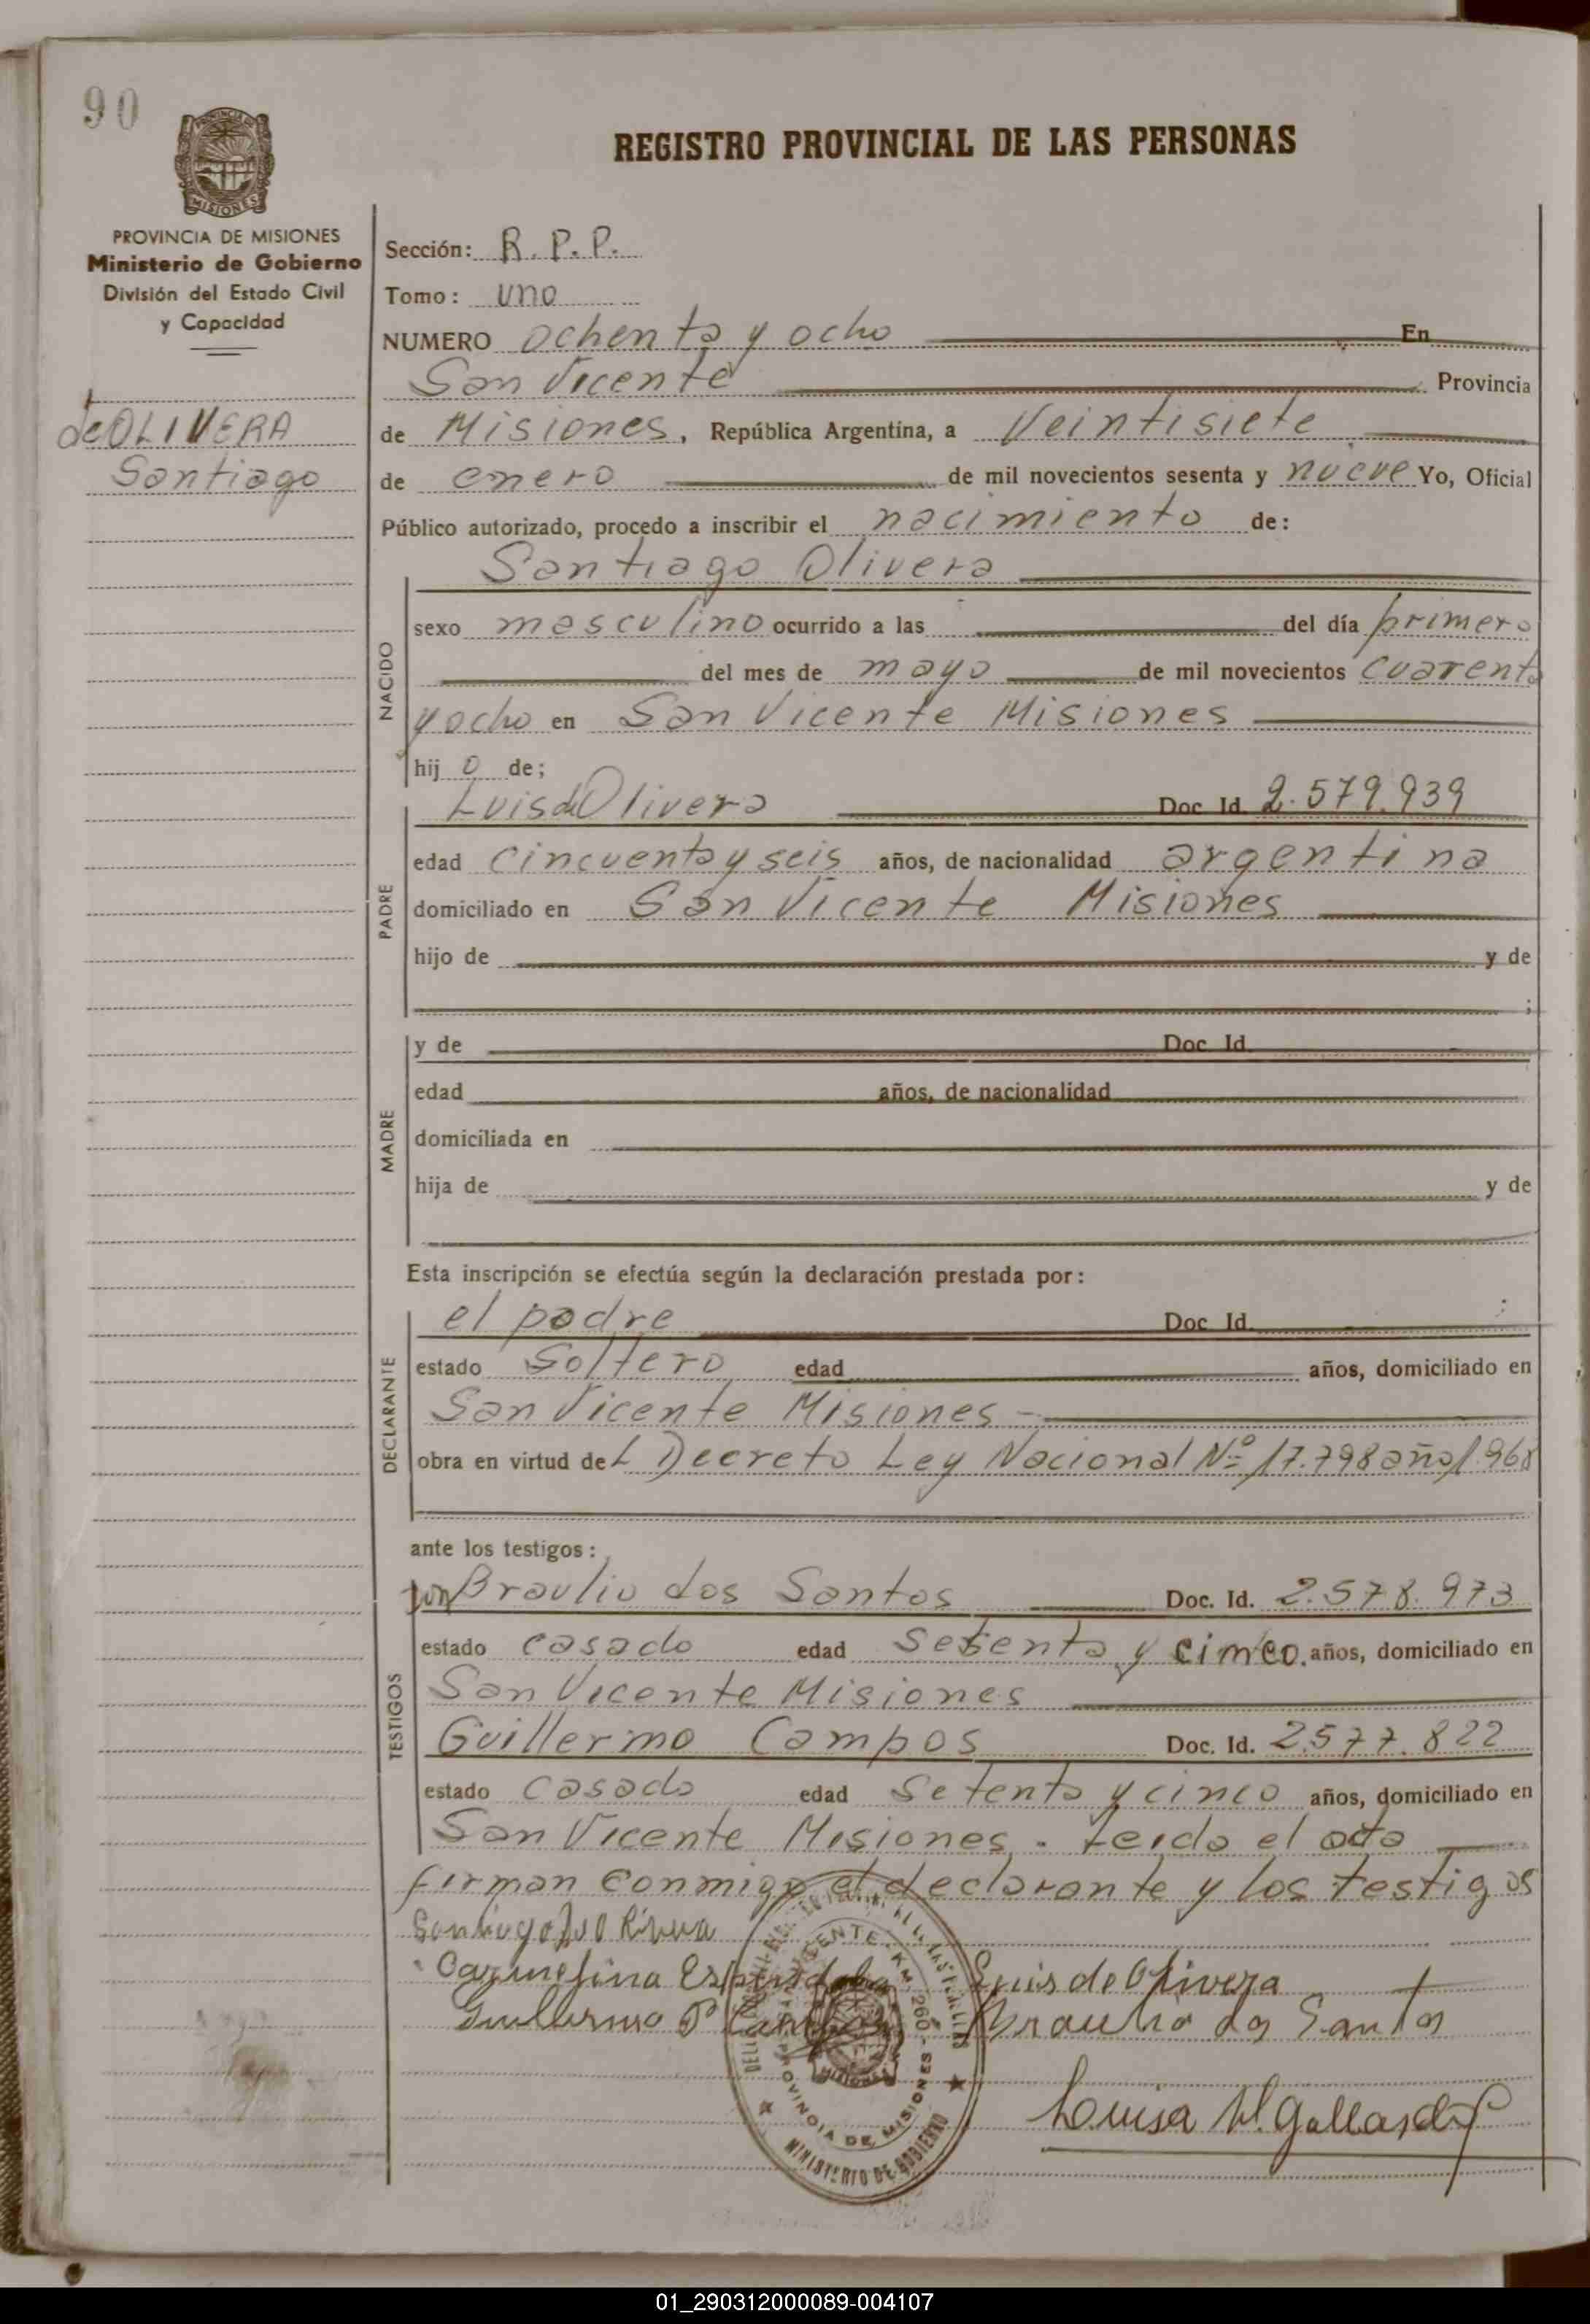 90
REGISTRO PROVINCIAL DE LAS PERSONAS
MISIONES
PROVINCIA DE MISIONES
Ministerio de Gobierno
División del Estado Civil
y Capacidad
de OLIVERA
Santiago
Sección: R. P. P.
Tomo: uno
NUMERO ochenta y ocho En
San Vicente Provincia
de Misiones, República Argentina, a Veintisiete
de enero de mil novecientos sesenta y nueve Yo, Oficial
Público autorizado, procedo a inscribir el nacimiento de:
Santiago Olivera
NACIDO
sexo masculino ocurrido a las del día primero
del mes de mayo de mil novecientos cuarenta
y ocho en San Vicente Misiones
hijo de;
PADRE
Luis de Olivera Doc Id. 2.579.939
edad cincuenta y seis años, de nacionalidad argentina
domiciliado en San Vicente Misiones
hijo de y de
;
MADRE
y de Doc Id.
edad años, de nacionalidad
domiciliada en
hija de y de
Esta inscripción se efectúa según la declaración prestada por:
DECLARANTE
el padre Doc Id.
estado Soltero edad años, domiciliado en
San Vicente Misiones -
obra en virtud del Decreto Ley Nacional Nº 17.798 año 1.968
ante los testigos:
TESTIGOS
don Braulio dos Santos Doc. Id. 2.578.973
estado casado edad setenta y cinco. años, domiciliado en
San Vicente Misiones
Guillermo Campos Doc. Id. 2.577.822
estado casado edad setenta y cinco años, domiciliado en
San Vicente Misiones. Leida el acta
firman conmigo el declarante y los testigos
Santiago
Luis de Olivera
Guillermo P Campos Braulio dos Santos
VICENTE - KM. 260 - PROVINCIA DE MISIONES
MINISTERIO DE GOBIERNO
MISIONES
Louisa M. Gallardo
01_290312000089-004107